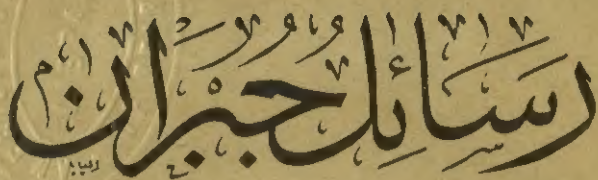 رَسَائِل جُبْرَان